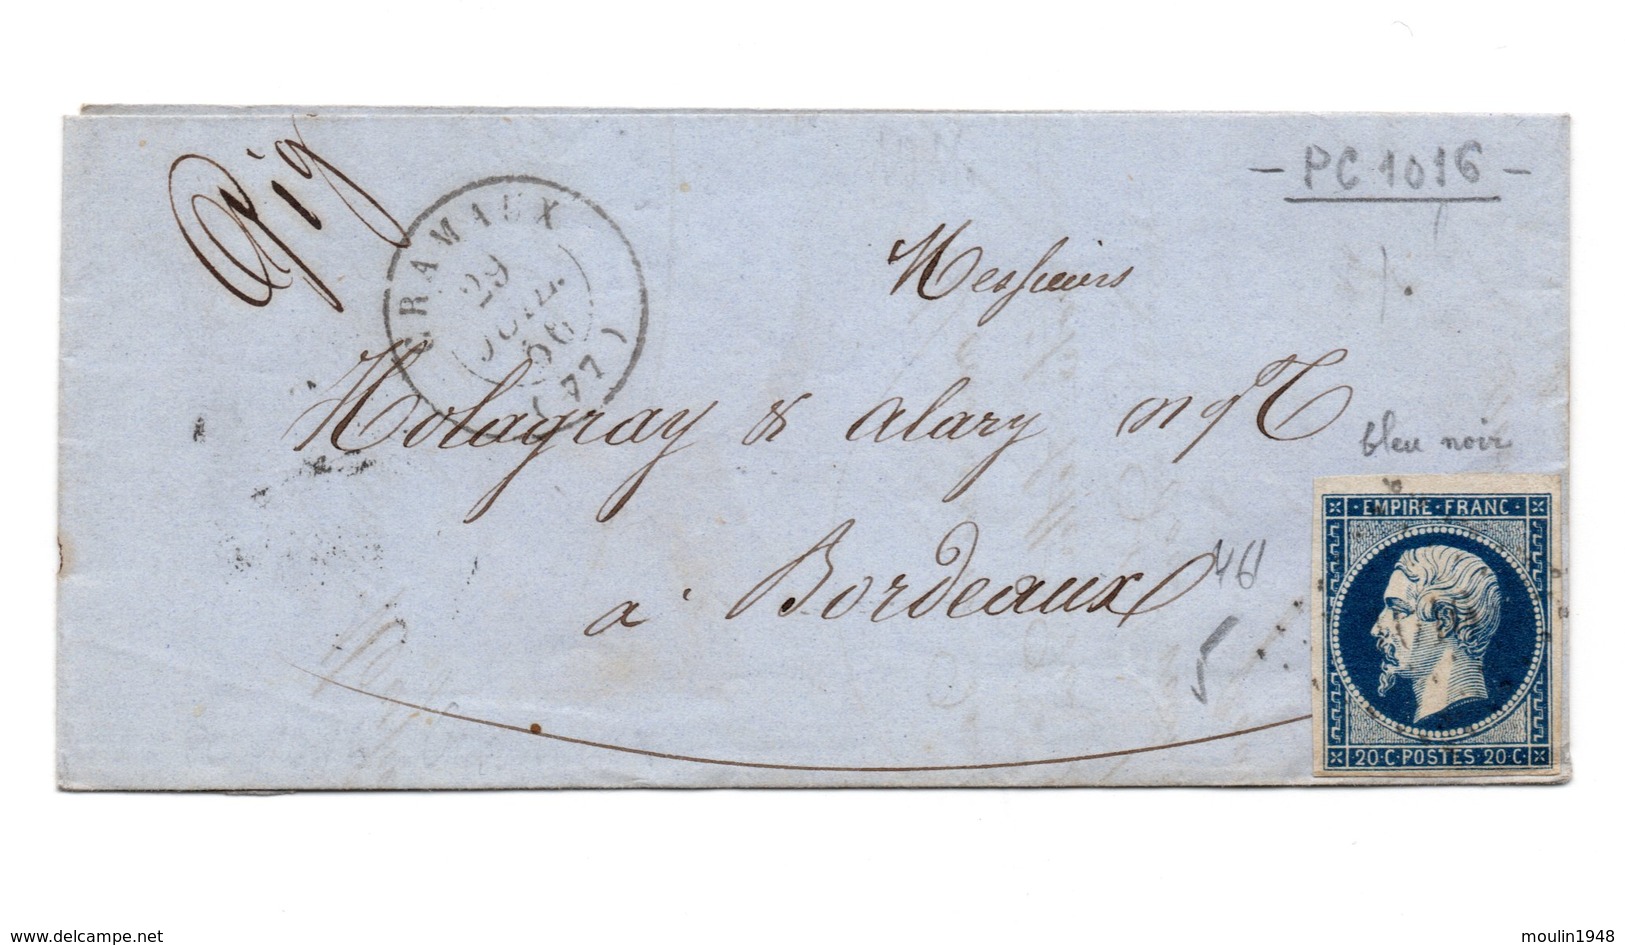 - PC 1016 -
CRAMAUX
29
JUIL.
56
(77)
Messieurs
Holagray & alary
bleu noir
à Bordeaux
46
5
EMPIRE·FRANC·
20·C·POSTES·20·C·
delcampe.net
moulin1948